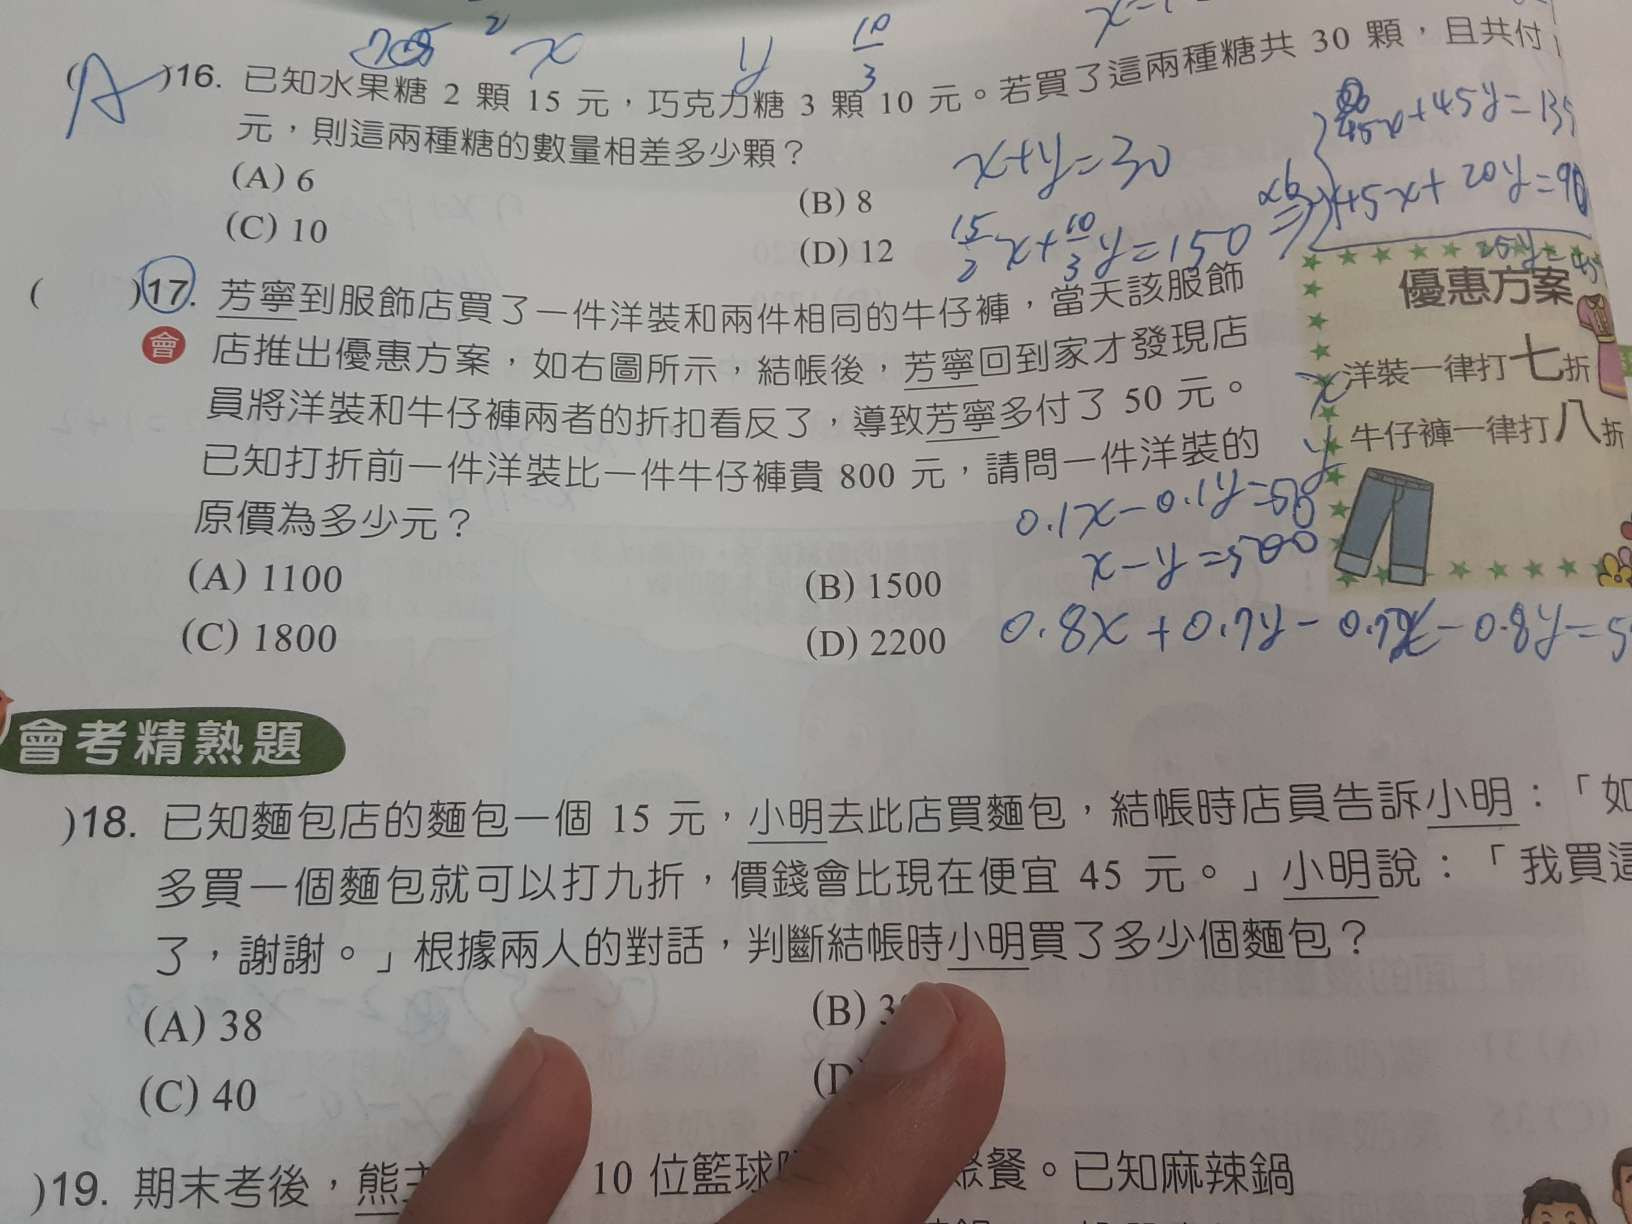 A
)16. 已知水果糖 2 顆 15 元，巧克力糖 3 顆 10 元。若買了這兩種糖共 30 顆，且共付
元，則這兩種糖的數量相差多少顆？
(A) 6
(B) 8
(C) 10
(D) 12
x
y
10/3
x+y=30
15/2 x+10/3 y=150
45x+20y=90
( )17. 芳寧到服飾店買了一件洋裝和兩件相同的牛仔褲，當天該服飾
會 店推出優惠方案，如右圖所示，結帳後，芳寧回到家才發現店
員將洋裝和牛仔褲兩者的折扣看反了，導致芳寧多付了 50 元。
已知打折前一件洋裝比一件牛仔褲貴 800 元，請問一件洋裝的
原價為多少元？
(A) 1100
(B) 1500
(C) 1800
(D) 2200
優惠方案
洋裝一律打七折
牛仔褲一律打八折
x
y
0.1x-0.1y=50
x-y=500
會考精熟題
)18. 已知麵包店的麵包一個 15 元，小明去此店買麵包，結帳時店員告訴小明：「如
多買一個麵包就可以打九折，價錢會比現在便宜 45 元。」小明說：「我買這
了，謝謝。」根據兩人的對話，判斷結帳時小明買了多少個麵包？
(A) 38
(B) 3
(C) 40
(D)
)19. 期末考後，熊 10 位籃球 聚餐。已知麻辣鍋